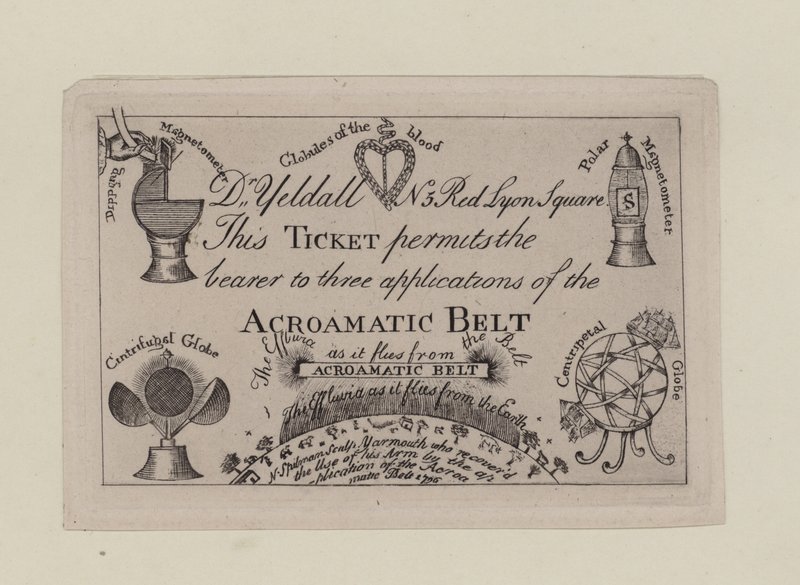 Dipping
Magnetometer
Globules of the blood
Polar Magnetometer
Dr,, Yeldall N3 Red Lyon Square
This TICKET permits the
bearer to three applications of the
ACROAMATIC BELT
The Effluvia as it flies from the Belt
ACROAMATIC BELT
The Effluvia as it flies from the Earth
Cintrifugal Globe
Centripetal Globe
N. Spilman Sculp. Yarmouth who recover'd
the Use of his Arm by the ap
plication of the Acroa
matic Belt 1796
S